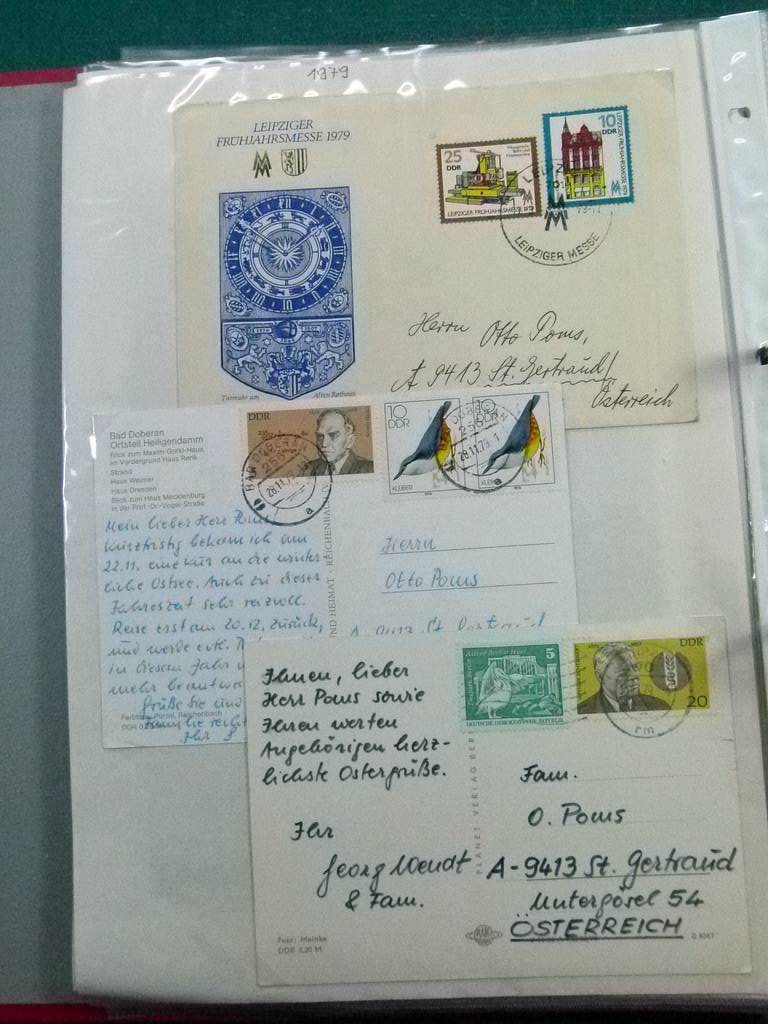 1979
LEIPZIGER
FRÜHJAHRSMESSE 1979
25
DDR
LEIPZIGER FRÜHJAHRSMESSE 1979
10
DDR
LEIPZIGER FRÜHJAHRSMESSE 1979
LEIPZIGER MESSE
Herrn Otto Poms,
A 9413 St. Gertraud/
Österreich
Turmuhr am Alten Rathaus
Bad Doberan
Ortsteil Heiligendamm
Blick zum Maxim Gorki-Haus,
im Vordergrund Haus Rerik
Strand
Haus Weimar
Haus Dresden
Blick zum Haus Mecklenburg
in der Prof.-Dr.-Vogel-Straße
DDR
10
DDR
KLEIBER
10
DDR
KLEIBER
BAD DOBERAN
28.11.79
a
DOBERAN
28.11.79
a
Mein lieber Herr Poms!
Kurzfristig bekam ich am
22.11. eine Kur an die winter-
liche Ostsee. Auch zu dieser
Jahreszeit sehr reizvoll.
Reise erst am 20.12. zurück,
und werde evtl.
in diesem Jahr
mehr
Grüße Sie und
Familie
Ihr
REICHENBACH
Herrn
Otto Poms
Ihnen, lieber
Herr Poms sowie
Ihren werten
Angehörigen herz-
lichste Ostergrüße.
Ihr
Georg Wendt
& Fam.
5
DEUTSCHE DEMOKRATISCHE REPUBLIK
DDR
20
PLANET VERLAG BER
Fam.
O. Poms
A-9413 St. Gertraud
Untergösel 54
ÖSTERREICH
Foto: Meinke
DDR 0,20 M